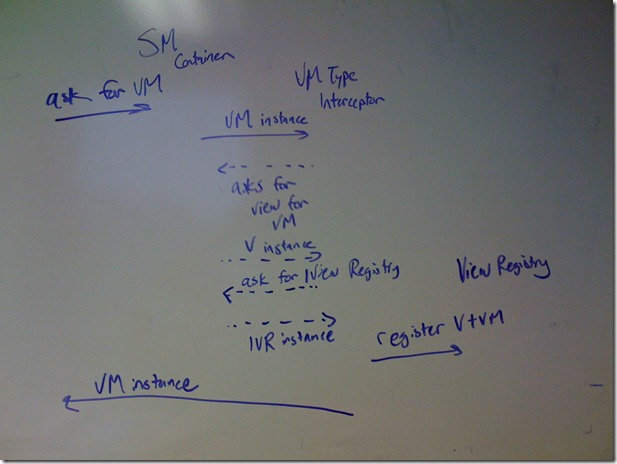 SM
Container
ask for VM
VM Type
Interceptor
VM instance
asks for
view for
VM
V instance
ask for IView Registry
View Registry
IVR instance
register V+VM
VM instance